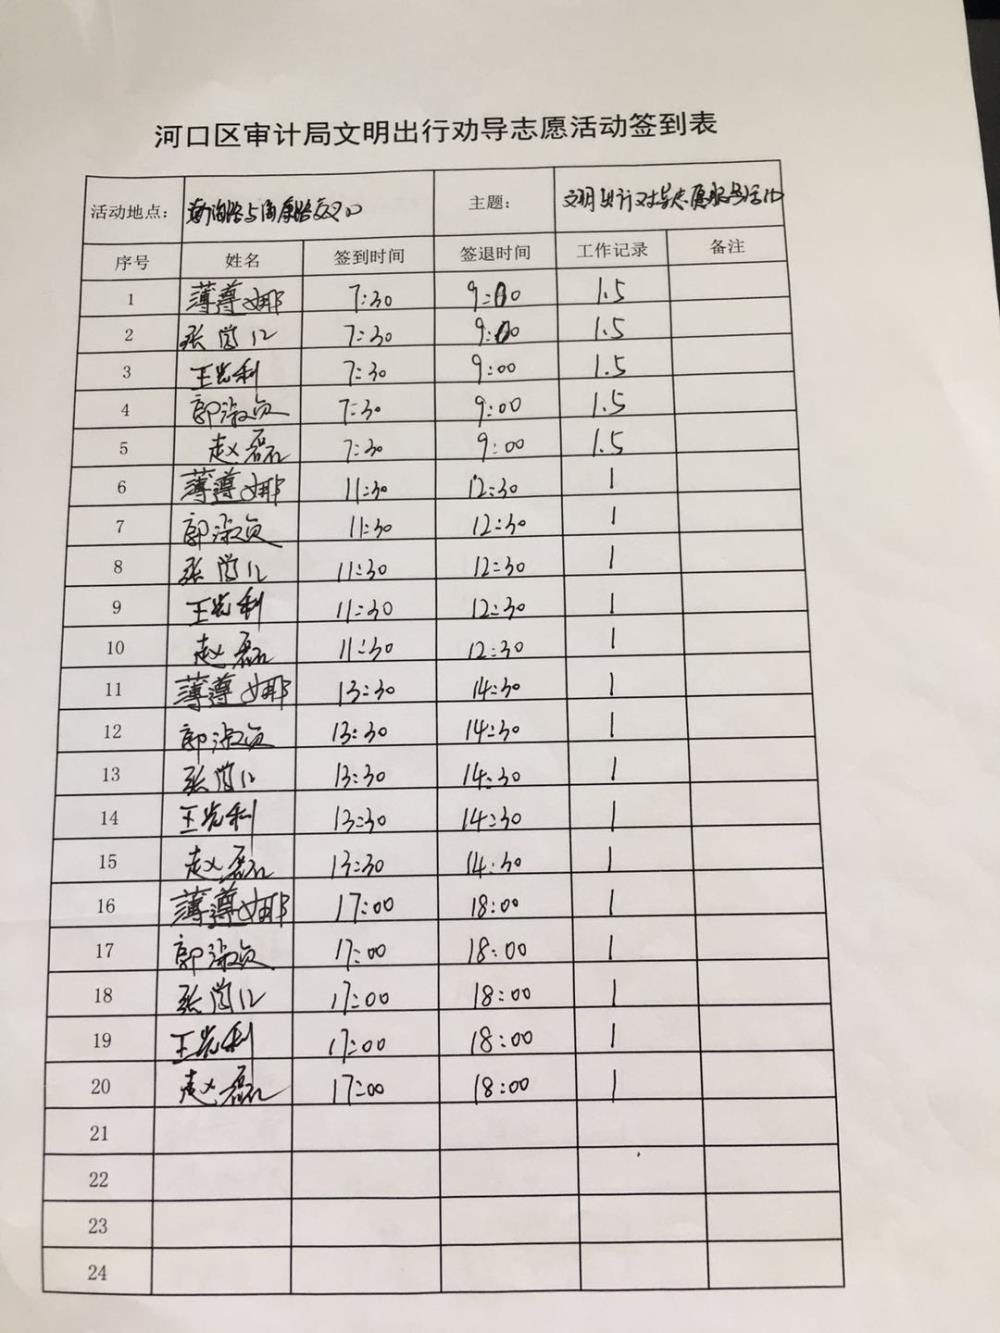 河口区审计局文明出行劝导志愿活动签到表
活动地点： 路与 路交叉口 主题： 文明出行劝导志愿服务活动
序号 姓名 签到时间 签退时间 工作记录 备注
1 薄尊娜 7:30 9:00 1.5
2 张 7:30 9:00 1.5
3 王光利 7:30 9:00 1.5
4 郭淑贞 7:30 9:00 1.5
5 赵磊 7:30 9:00 1.5
6 薄尊娜 11:30 12:30 1
7 郭淑贞 11:30 12:30 1
8 张 11:30 12:30 1
9 王光利 11:30 12:30 1
10 赵磊 11:30 12:30 1
11 薄尊娜 13:30 14:30 1
12 郭淑贞 13:30 14:30 1
13 张 13:30 14:30 1
14 王光利 13:30 14:30 1
15 赵磊 13:30 14:30 1
16 薄尊娜 17:00 18:00 1
17 郭淑贞 17:00 18:00 1
18 张 17:00 18:00 1
19 王光利 17:00 18:00 1
20 赵磊 17:00 18:00 1
21
22
23
24